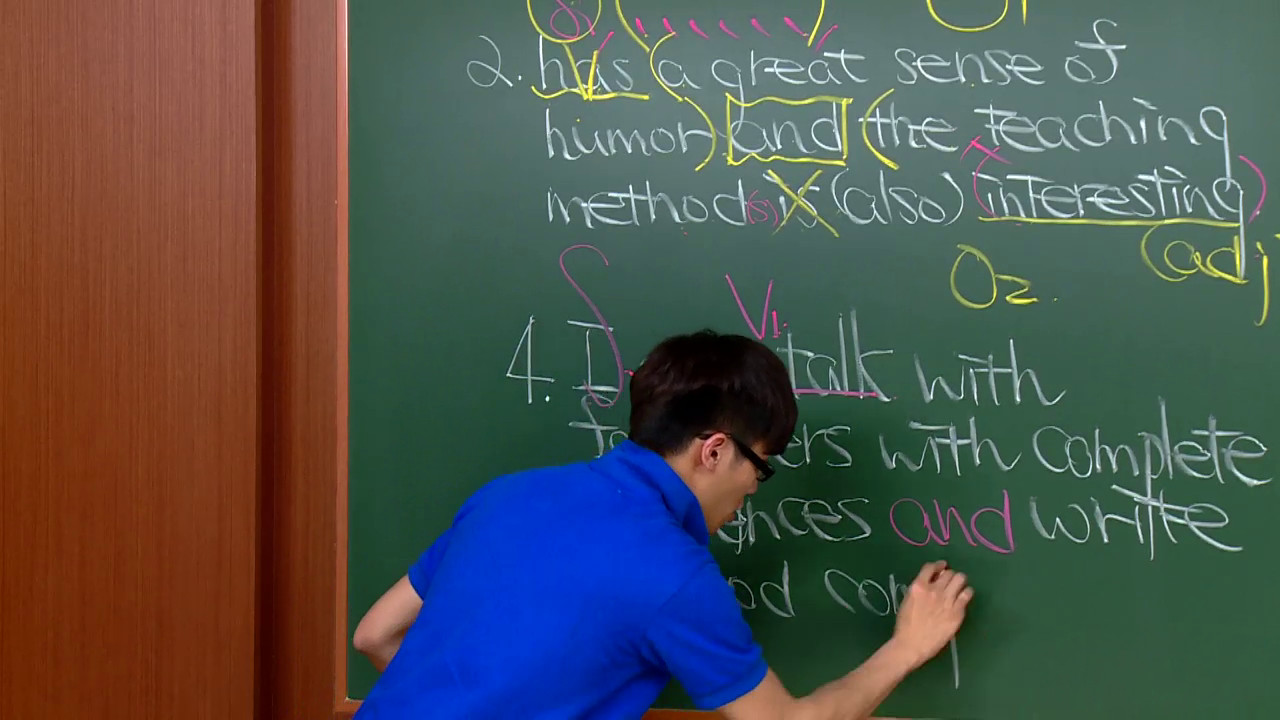 S
2. has (a great sense of
humor) and (the teaching
method(s) is (also) (interesting)
O2. (adj
S V1.
4. I talk with
ers with complete
ences and write
od com